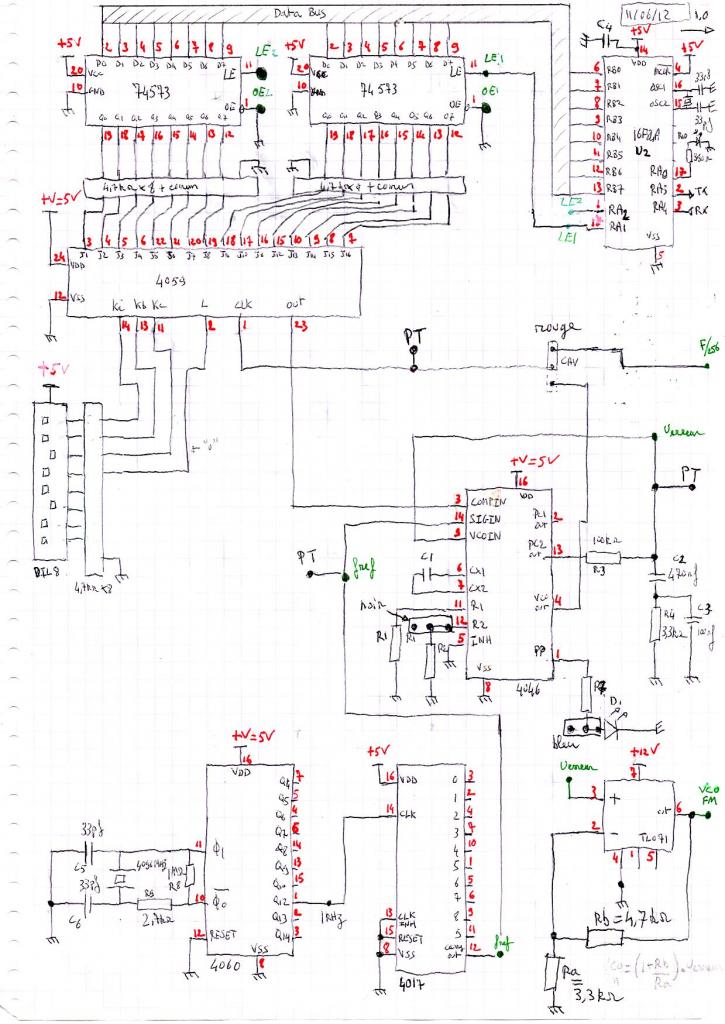 Data Bus
11/06/12 1,0
+5V
C4
+5V
+5V LE2 +5V LE1
2 3 4 5 6 7 8 9
2 3 4 5 6 7 8 9
D0 D1 D2 D3 D4 D5 D6 D7
D0 D1 D2 D3 D4 D5 D6 D7
20 VCC LE 11
20 VCC LE 11
10 GND 74573 OE 1 OE2
10 GND 74573 OE 1 OE1
Q0 Q1 Q2 Q3 Q4 Q5 Q6 Q7
Q0 Q1 Q2 Q3 Q4 Q5 Q6 Q7
19 18 17 16 15 14 13 12
19 18 17 16 15 14 13 12
14 VDD
6 RB0 MCLR 4
7 RB1 OSC1 16 33pF
8 RB2 OSC2 15 33pF
9 RB3
10 RB4 16F62A
11 RB5 U2
12 RB6 RA0 17
13 RB7 RA3 2 TX
LE2 1 RA2 RA4 3 RX
LE1 RA1
VSS
5
4,7kΩ x 8 + comun
4,7kΩ x 8 + comun
+V=5V
3 4 5 6 22 21 20 19 18 17 16 15 10 9 8 7
J1 J2 J3 J4 J5 J6 J7 J8 J9 J10 J11 J12 J13 J14 J15 J16
24 VDD
4059
12 VSS
Ka Kb Kc L CLK out
14 13 11 2 1 23
PT
rouge
CAV
F/256
+5V
"0"
DIL8
4,7kΩ x8
Verreur
PT
+V=5V
16
VDD
3 COMPIN
14 SIGIN PC1 out 2
9 VCOIN
PC2 out 13
100kΩ
R3
PT fref
C1
6 CX1
7 CX2
11 R1 VCO out 4
noir
12 R2
5 INH
R1 R1 R2
PP 1
VSS
8
4046
C2
470nF
R4
33kΩ
C3
D1
bleu
+V=5V
16
VDD
Q4 7
Q5 5
Q6 4
Q7 6
Q8 14
Q9 13
Q10 15
Q12 1
Q13 2
Q14 3
11 Φ1
10 Φ0
12 RESET
VSS
8
4060
33pF
C5
33pF
C6
4096MHz
1MΩ
R8
2,7kΩ
1kHz
+5V
16 VDD
14 CLK
13 CLK INH
15 RESET
8 VSS
0 3
1 2
2 4
3 7
4 10
5 1
6 5
7 6
8 9
9 11
carry out 12
4017
fref
+12V
7
Verreur
3 +
2 −
out 6
VCO FM
TL071
4 1 5
Rb=4,7kΩ
Ra = 3,3kΩ
VCO = (1+Rb/Ra).Verreur